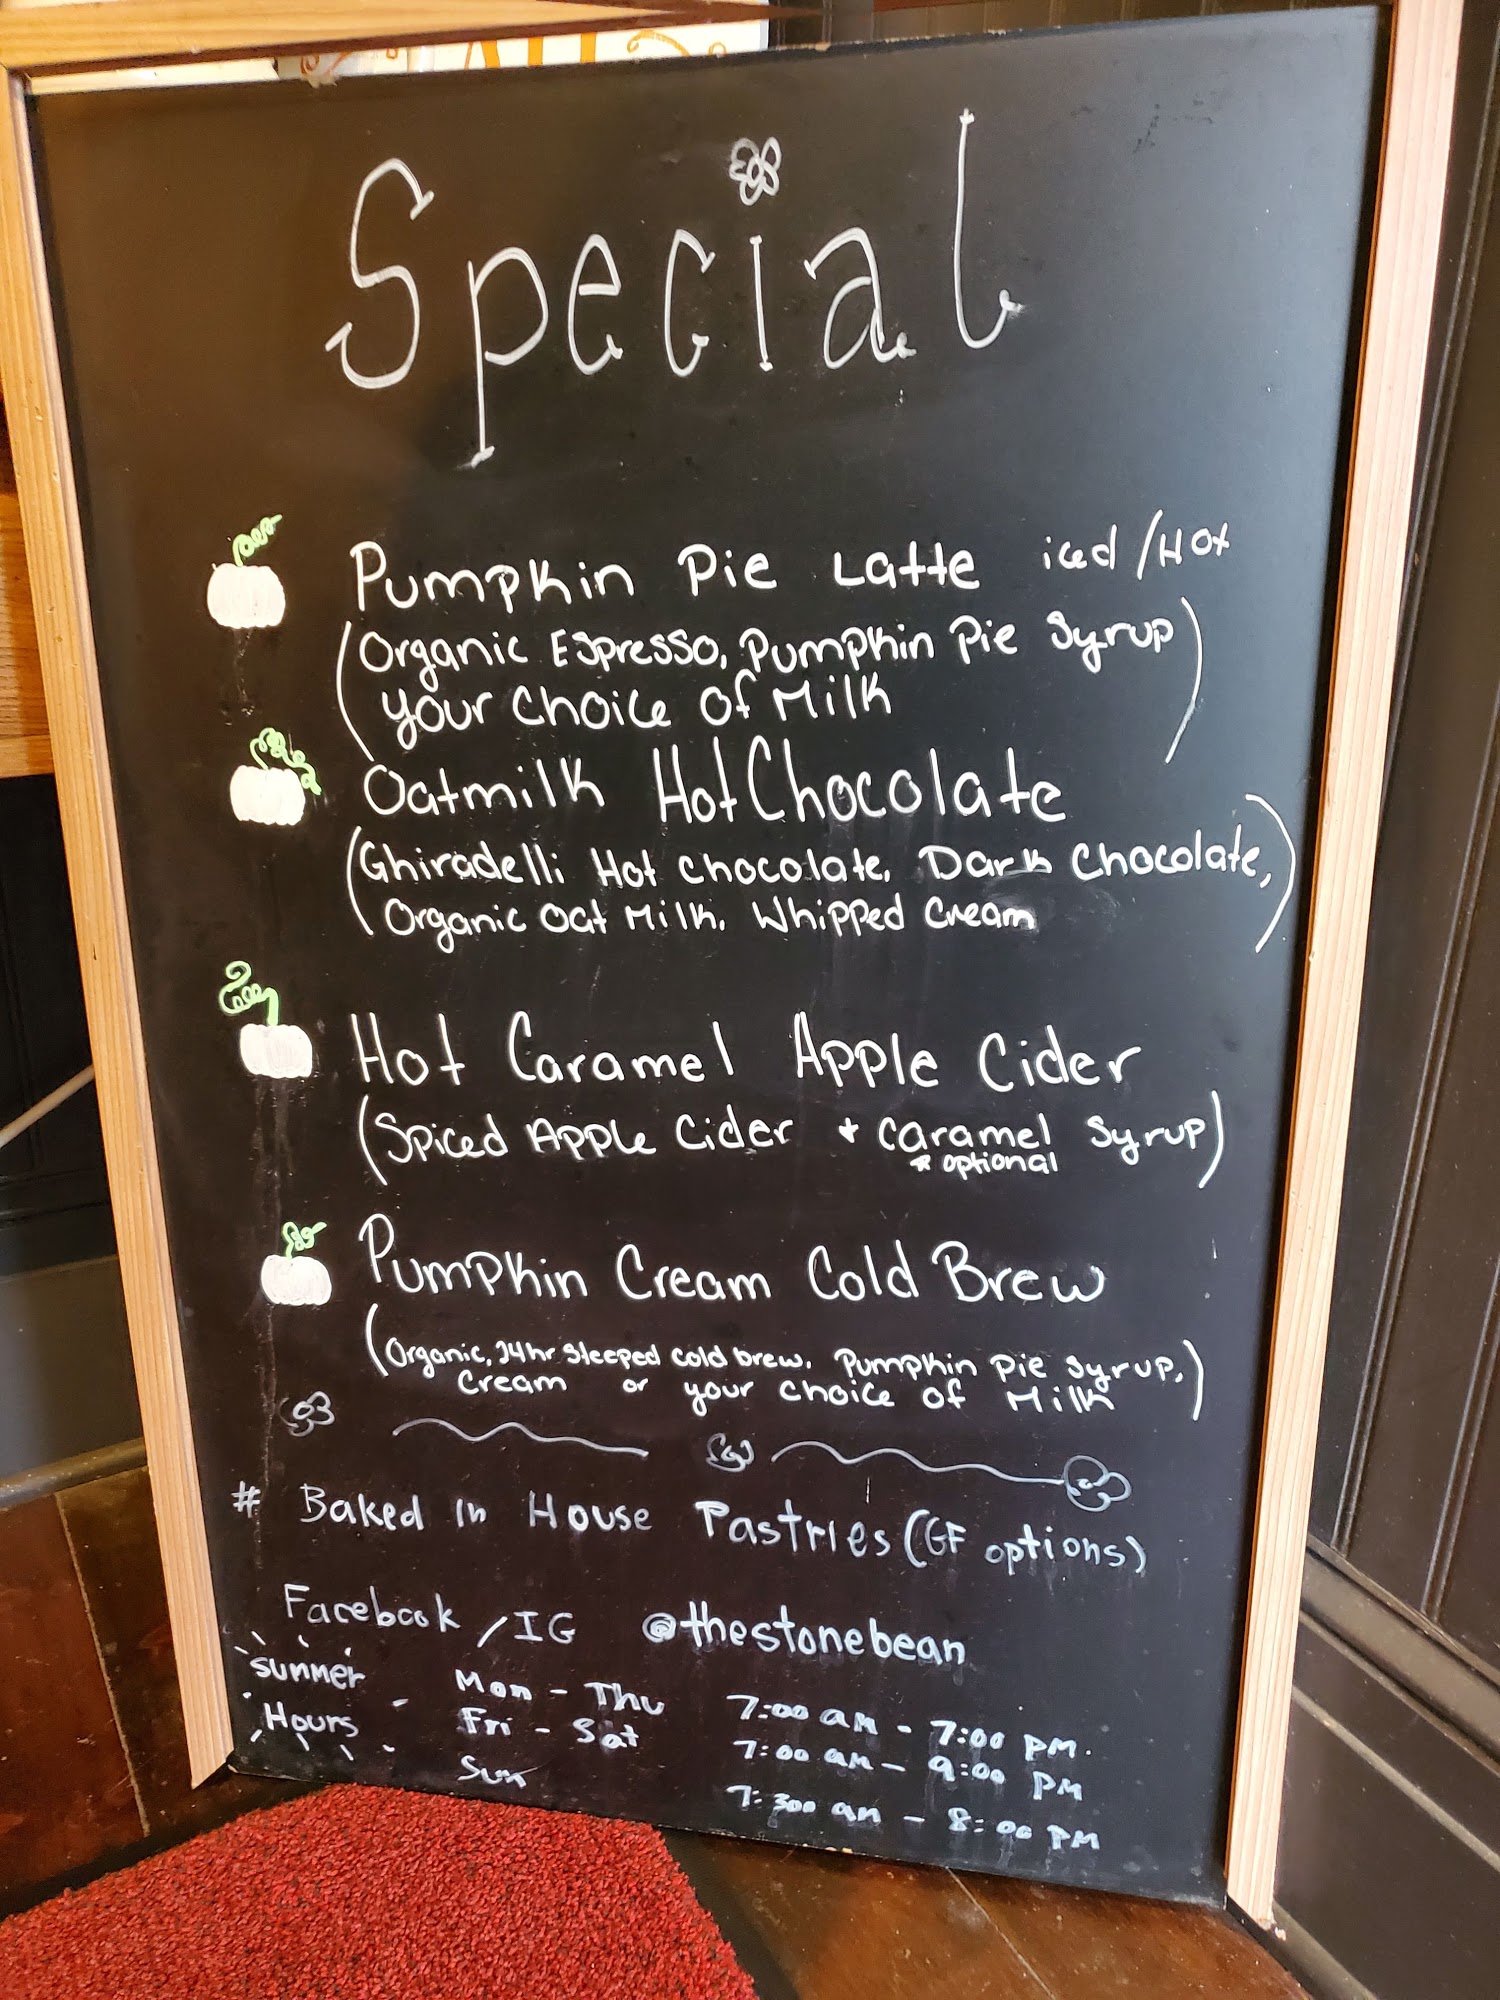 Special
Pumpkin Pie Latte iced / Hot
(Organic Espresso, Pumpkin Pie Syrup
your choice of Milk)
Oatmilk Hot Chocolate
(Ghiradelli Hot chocolate, Dark Chocolate,
Organic Oat Milk, Whipped Cream)
Hot Caramel Apple Cider
(Spiced Apple Cider + Caramel Syrup)
* optional
Pumpkin Cream Cold Brew
(Organic, 24hr Steeped cold brew, Pumpkin Pie Syrup,
Cream or your choice of Milk)
# Baked In House Pastries (GF options)
Facebook / IG @thestonebean
Sunner Hours
Mon - Thu 7:00 am - 7:00 PM.
Fri - Sat 7:00 am - 9:00 PM
Sun 7:300 am - 8:00 PM